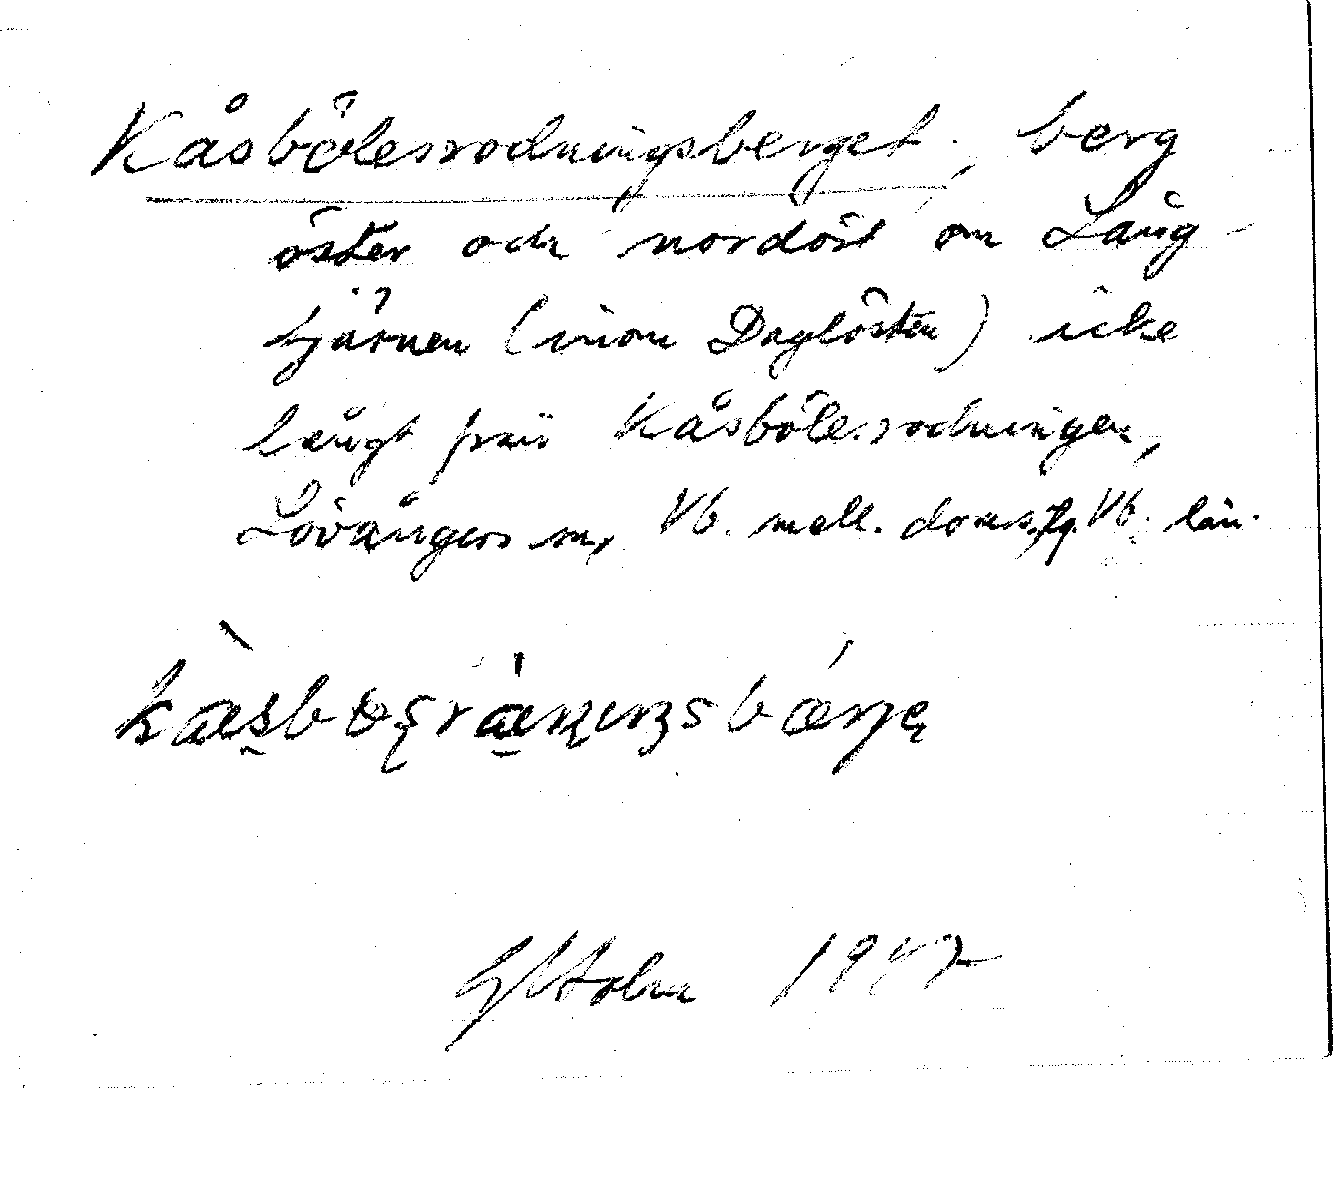 Kåsbölesrodningsberget, berg
öster och nordöst om Lång-
tjärnen (inom Daglösten) icke
långt från Kåsbölesrodningen,
Lövångers sn, Vb. mell. doms, Vb. län.
G Holm 1947